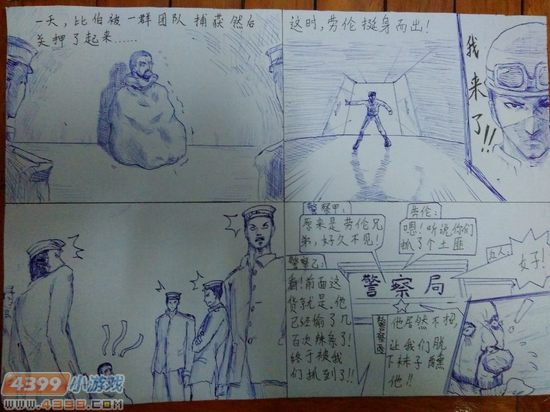 一天，比伯被一群团队捕获然后
关押了起来……
这时，劳伦挺身而出！
我来了！！
警察甲：
原来是劳伦兄
弟，好久不见！
劳伦：
嗯！听说你们
抓了个土匪
警察乙
看！前面这
货就是，他
已经偷了几
百次辣条了！
终于被我
们抓到了！！
警察局
女子！
警察丙
他居然不招，
让我们脱
下袜子熏
他！！
4399小游戏
www.4399.com